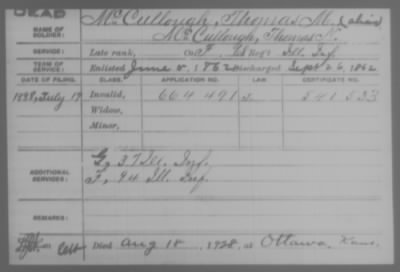 DEAD
NAME OF SOLDIER: McCullough, Thomas M. (alias)
McCullough, Thomas N.
SERVICE: Late rank, Co. F, Reg't Ill. Inf.
TERM OF SERVICE: Enlisted June 5, 1862 Discharged Sept 26, 1862
DATE OF FILING. CLASS. APPLICATION NO. LAW CERTIFICATE NO.
1888, July 19 Invalid, 664 491 541 533
Widow,
Minor,
ADDITIONAL SERVICES: G, 37 Ill. Inf.
F, 94 Ill. Inf.
REMARKS:
Died Aug 18, 1928, at Ottawa, Kans.